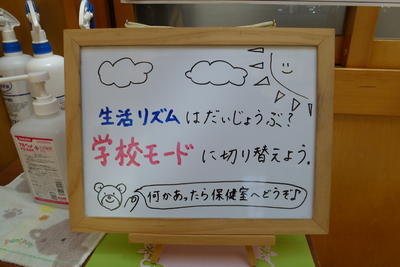 生活リズムはだいじょうぶ？
学校モードに切り替えよう.
何かあったら保健室へどうぞ♪